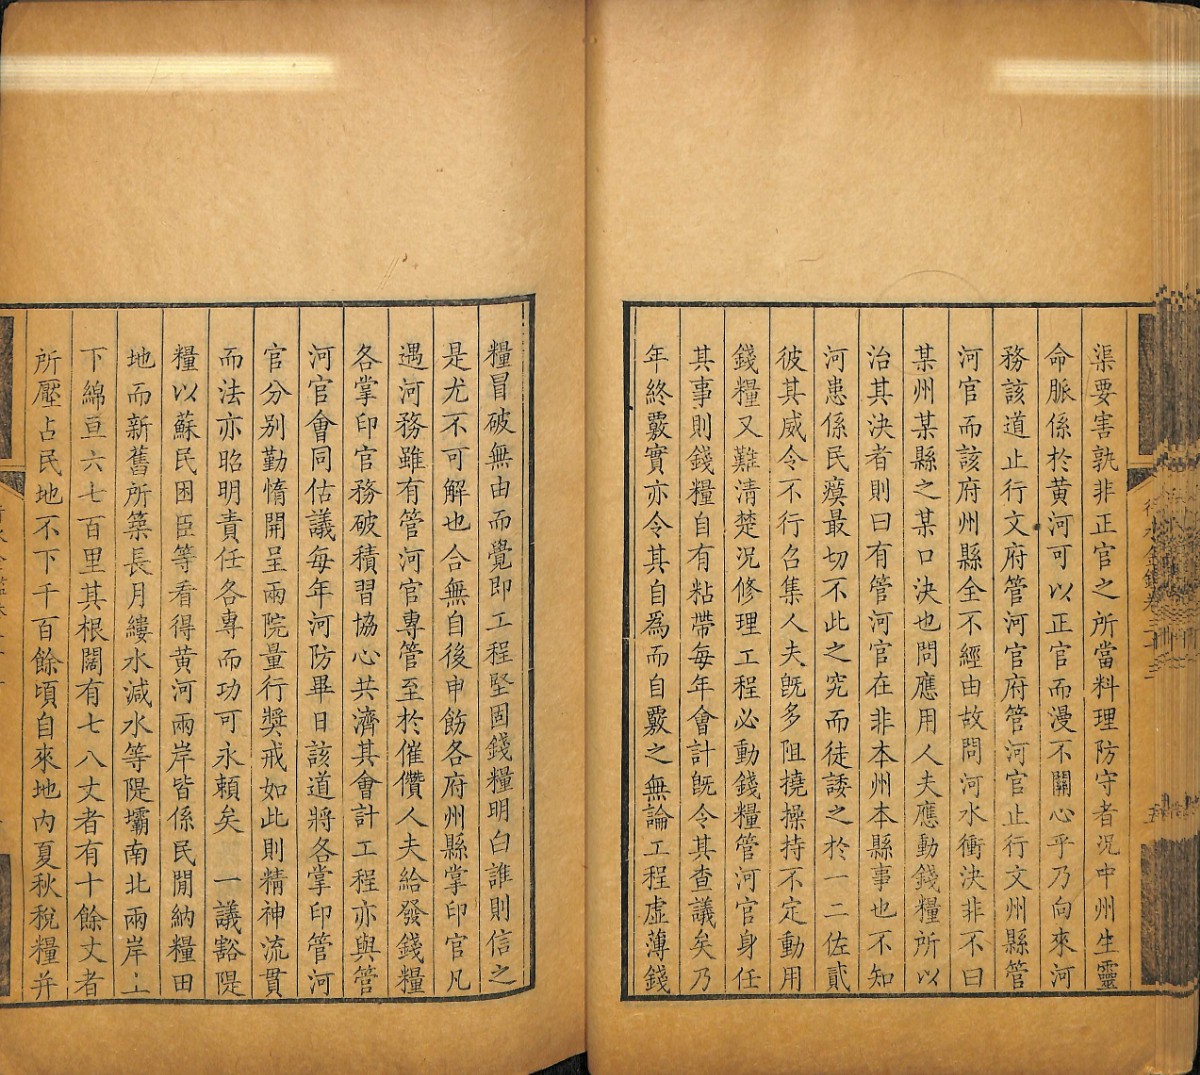 渠要害孰非正官之所當料理防守者況中州生靈
命脈係於黄河可以正官而漫不關心乎乃向來河
務該道止行文府管河官府管河官止行文州縣管
河官而該府州縣全不經由故問河水衝決非不曰
某州某縣之某口決也問應用人夫應動錢糧所以
治其決者則曰有管河官在非本州本縣事也不知
河患係民瘼最切不此之究而徒諉之於一二佐貳
彼其威令不行召集人夫旣多阻撓操持不定動用
錢糧又難清楚況修理工程必動錢糧管河官身任
其事則錢糧自有粘帶每年會計旣令其查議矣乃
年終覈實亦令其自爲而自覈之無論工程虛薄錢
糧冒破無由而覺即工程堅固錢糧明白誰則信之
是尤不可解也合無自後申飭各府州縣掌印官凡
遇河務雖有管河官專管至於催儹人夫給發錢糧
各掌印官務破積習協心共濟其會計工程亦與管
河官會同估議每年河防畢日該道將各掌印管河
官分别勤惰開呈兩院量行奬戒如此則精神流貫
而法亦昭明責任各專而功可永賴矣　一議豁隄
糧以蘇民困臣等看得黄河兩岸皆係民間納糧田
地而新舊所築長月縷水減水等隄壩南北兩岸上
下綿亘六七百里其根闊有七八丈者有十餘丈者
所壓占民地不下千百餘頃自來地內夏秋稅糧并